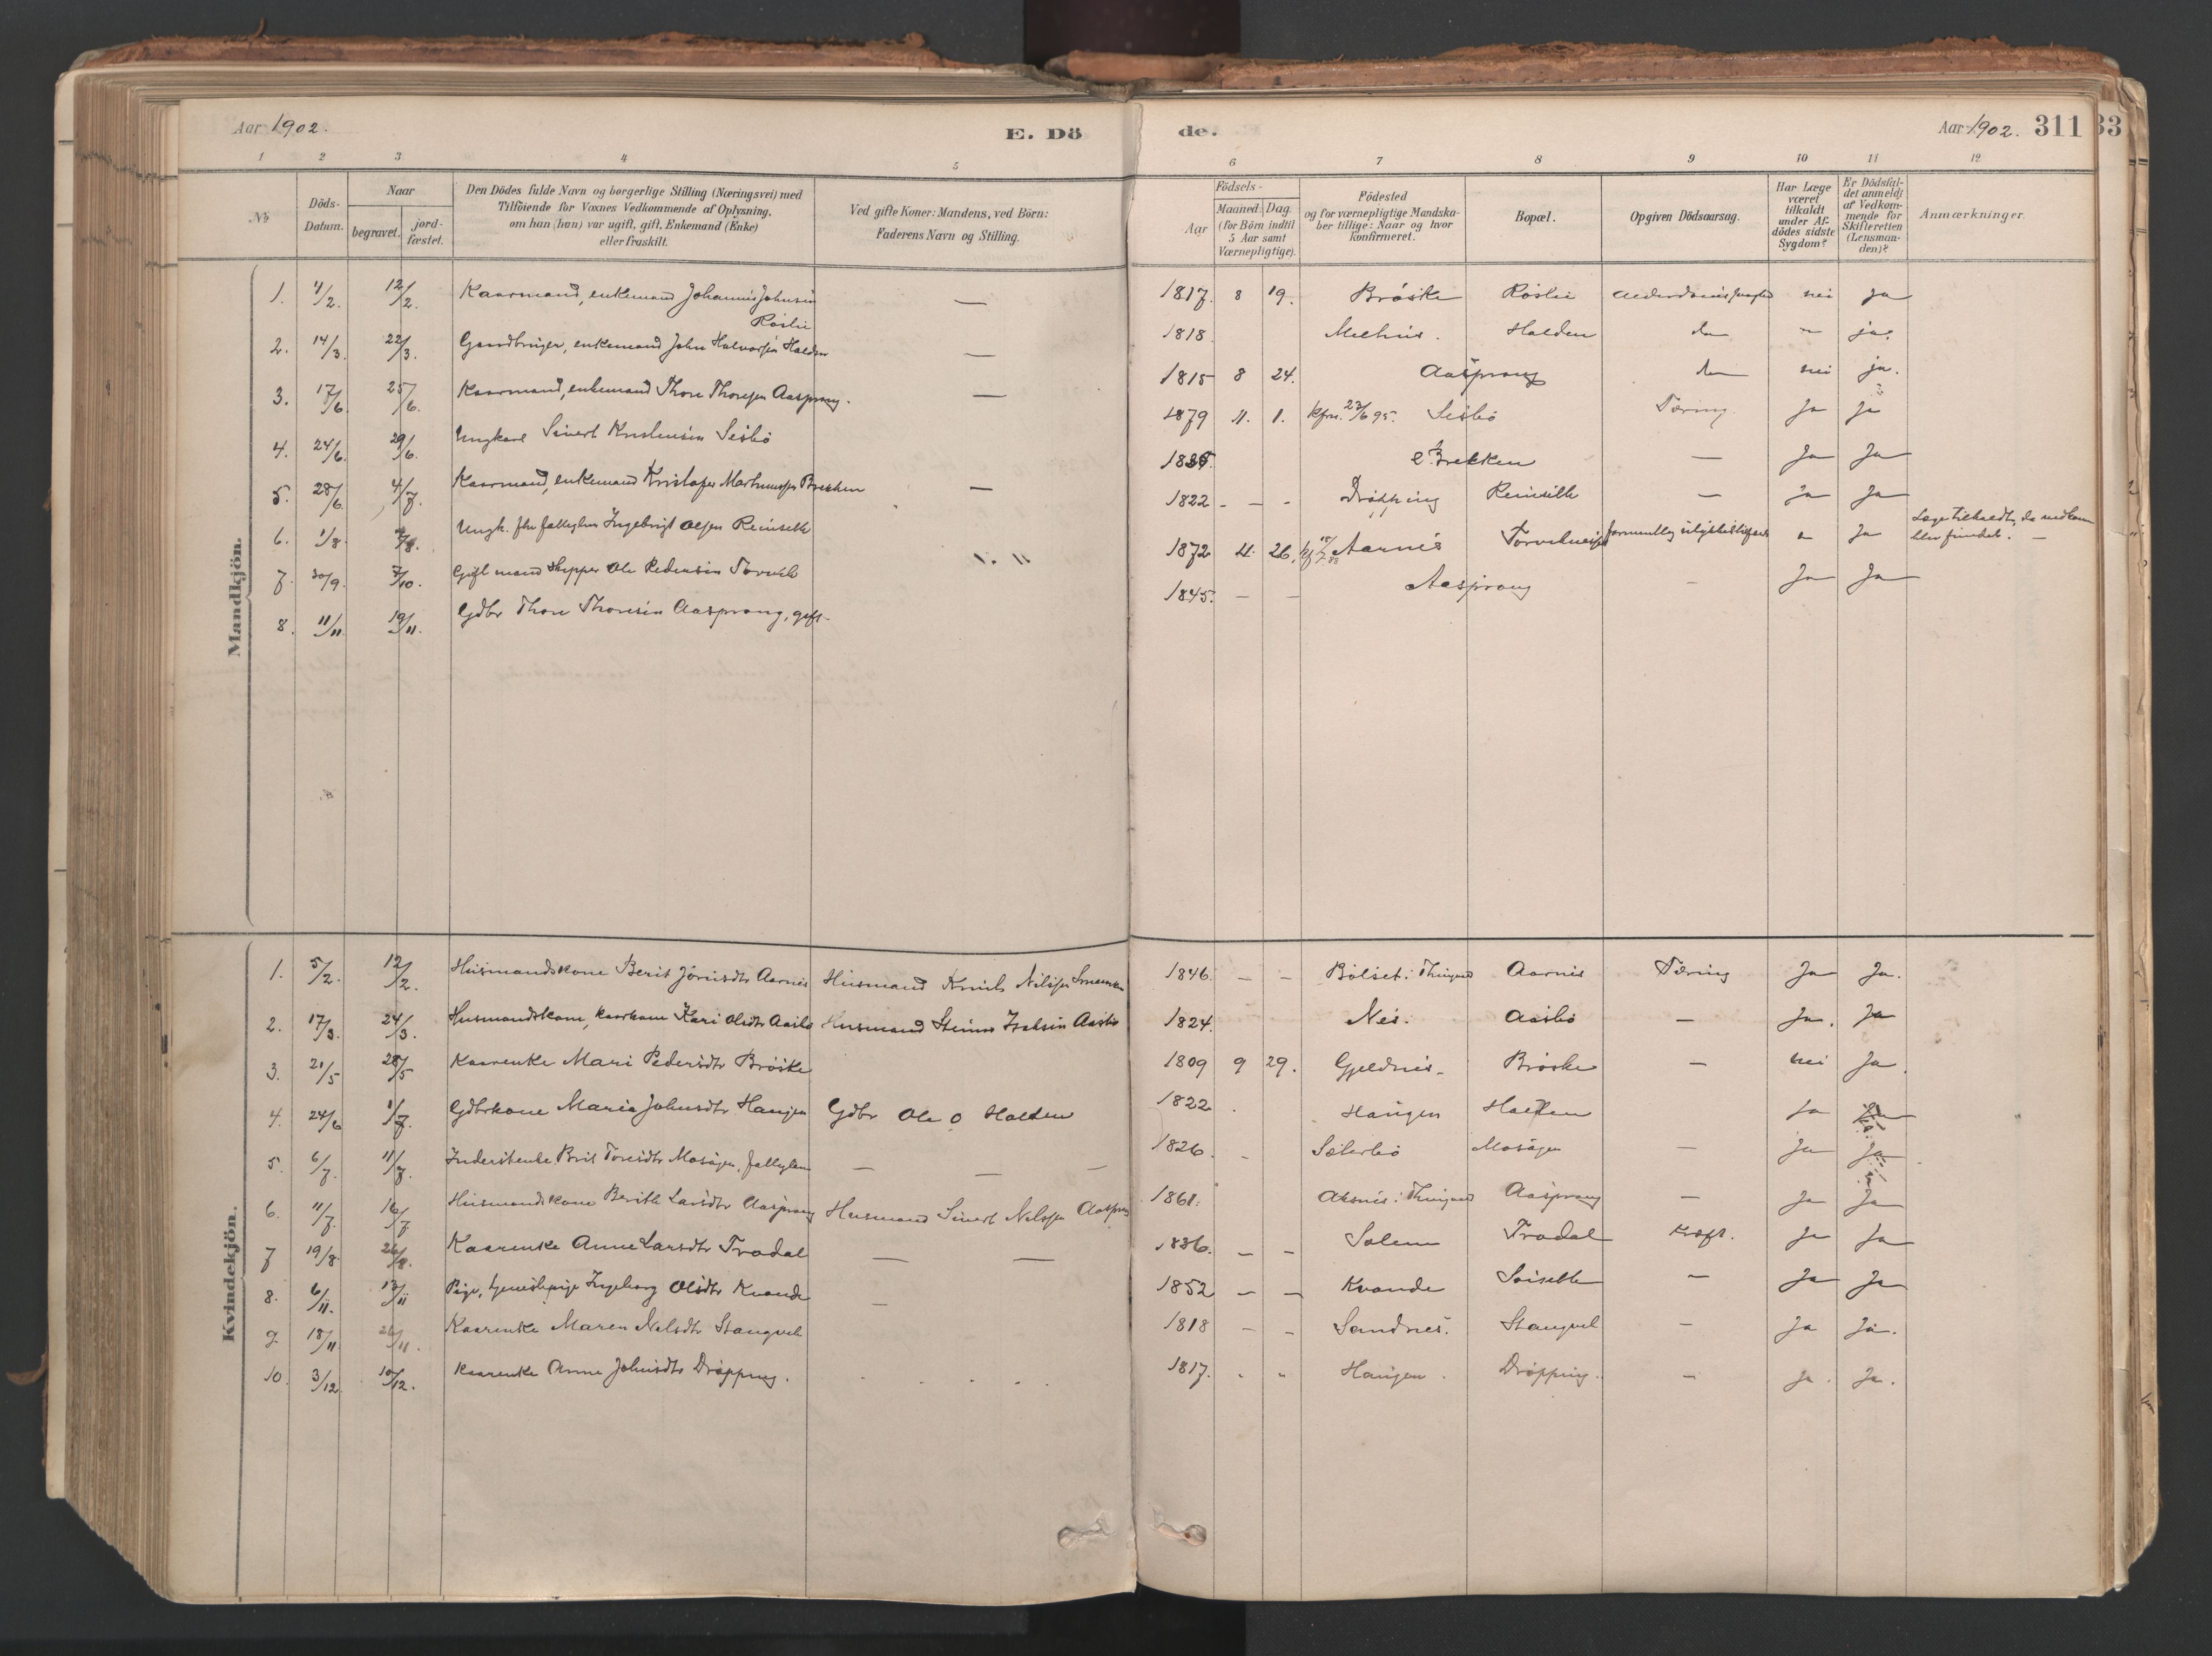 Aar 1902.
E. Dö
de.
Aar 1902. 311
33
1 2 3 4 5 6 7 8 9 10 11 12
No
Döds-Datum.
Naar
begravet.
jord-fæstet.
Den Dödes fulde Navn og borgerlige Stilling (Næringsvei) med
Tilföiende for Voxnes Vedkommende af Oplysning,
om han (hun) var ugift, gift, Enkemand (Enke)
eller fraskilt.
Ved gifte Koner: Mandens, ved Börn:
Faderens Navn og Stilling.
Födsels-
Aar
Maaned.
Dag.
(for Börn indtil
5 Aar samt
Værnepligtige).
Födested
og for værnepligtige Mandska-
ber tillige: Naar og hvor
konfirmeret.
Bopæl.
Opgiven Dödsaarsag.
Har Læge
været
tilkaldt
under Af-
dödes sidste
Sygdom?
Er Dödsfal-
det anmeldt
af Vedkom-
mende for
Skifteretten
(Lensman-
den)?
Anmærkninger.
Mandkjön.
1. 4/2. 12/2. Kaarmand, enkemand Johannes Johnsen Röslie — 1817. 8 19. Bröske Röslie nei ja
2. 14/3. 22/3. Gaardbruger, enkemand John Halvorsen Halden — 1818. Meehus. Halden do " ja.
3. 17/6. 25/6. Kaarmand, enkemand Thore Thoresen Aasprong. — 1815 8 24. Aasprong do nei ja.
4. 24/6. 29/6. Ungkarl Sivert Kristensen Seibö 1879 11. 1. kfm. 23/6 95. Seibö Tæring. Ja ja
5. 28/6. 4/7. Kaarmand, enkemand Kristofer Brekken — 1835. Brekken — Ja Ja
6. 1/8. Ungk. Ingebrigt Olsen Reinseth 1822 - — - Dröpping Reinseth — Ja Ja
7. 30/9. 7/10. Gift mand Skipper Ole Pedersen Torvik 1872 11. 26. Aarnes Ja
8. 11/11. 19/11. Gdbr Thore Thoresen Aasprong, gift. 1845. — — Aasprong - Ja Ja
Kvindekjön.
1. 5/2. 12/2. Husmandskone Berit Jörnsdtr Aarnes Husmand Knut Nilssen 1846. — — Bölset i Thingvold Aarnes Tæring Ja Ja.
2. 17/3. 24/3. Husmandskone, kaarkone Kari Olsdtr Aasbö Husmand Aasbö 1824. Nes. Aasbö — Ja. Ja
3. 21/5 28/5 Kaarenke Mari Pedersdtr Bröske 1809 9 29. Gjeldnes. Bröske — nei Ja.
4. 24/6 1/7. Gdbrkone Maria Johnsdtr Haugen Gdbr Ole O Halden 1822. Haugen Halden Ja
5. 6/7. 11/7. Brit Toresdtr Mosögen, — — — 1826. - Sæterbö Mosögen — Ja Ja
6. 11/7. 16/7 Husmandskone Berith Larsdtr Aasprong Husmand Sivert Nilssen 1861. Aksnes i Thingvold Aasprong — Ja Ja
7 19/8. 26/8. Kaarenke Anne Larsdtr Tradal — — 1836. — — Solem Tradal Kræft. Ja Ja
8. 6/11. 13/11 Pige, tjenestepige Ingeborg Olsdtr Kvande — 1852 — — Kvande — Ja Ja
9. 18/11 26/11. Kaarenke Maren Nelsdtr Stangvik 1818 — - Sandnes. Stangvik — Ja Ja.
10. 3/12. 10/12. Kaarenke Anne Johnsdtr Dröpping. 1817. " " Haugen. Dröpping. — Ja. Ja.